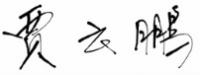 贾云鹏